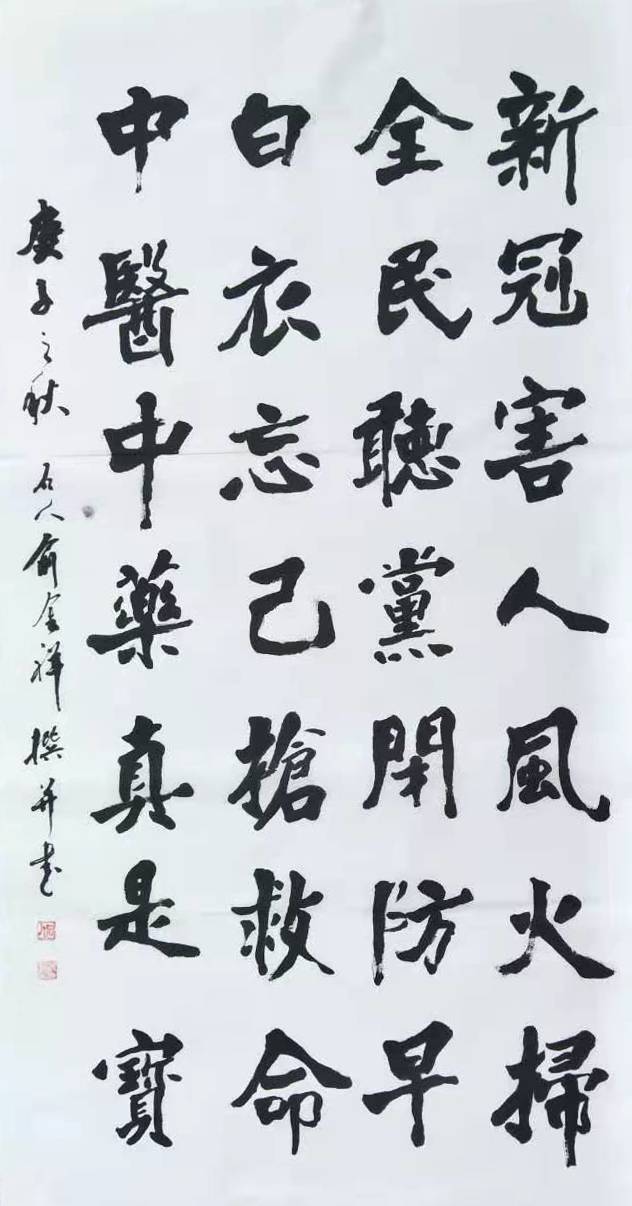 新冠害人風火掃
全民聽黨閉防早
白衣忘己搶救命
中醫中藥真是寶
庚子之秋 石人俞金祥撰并书